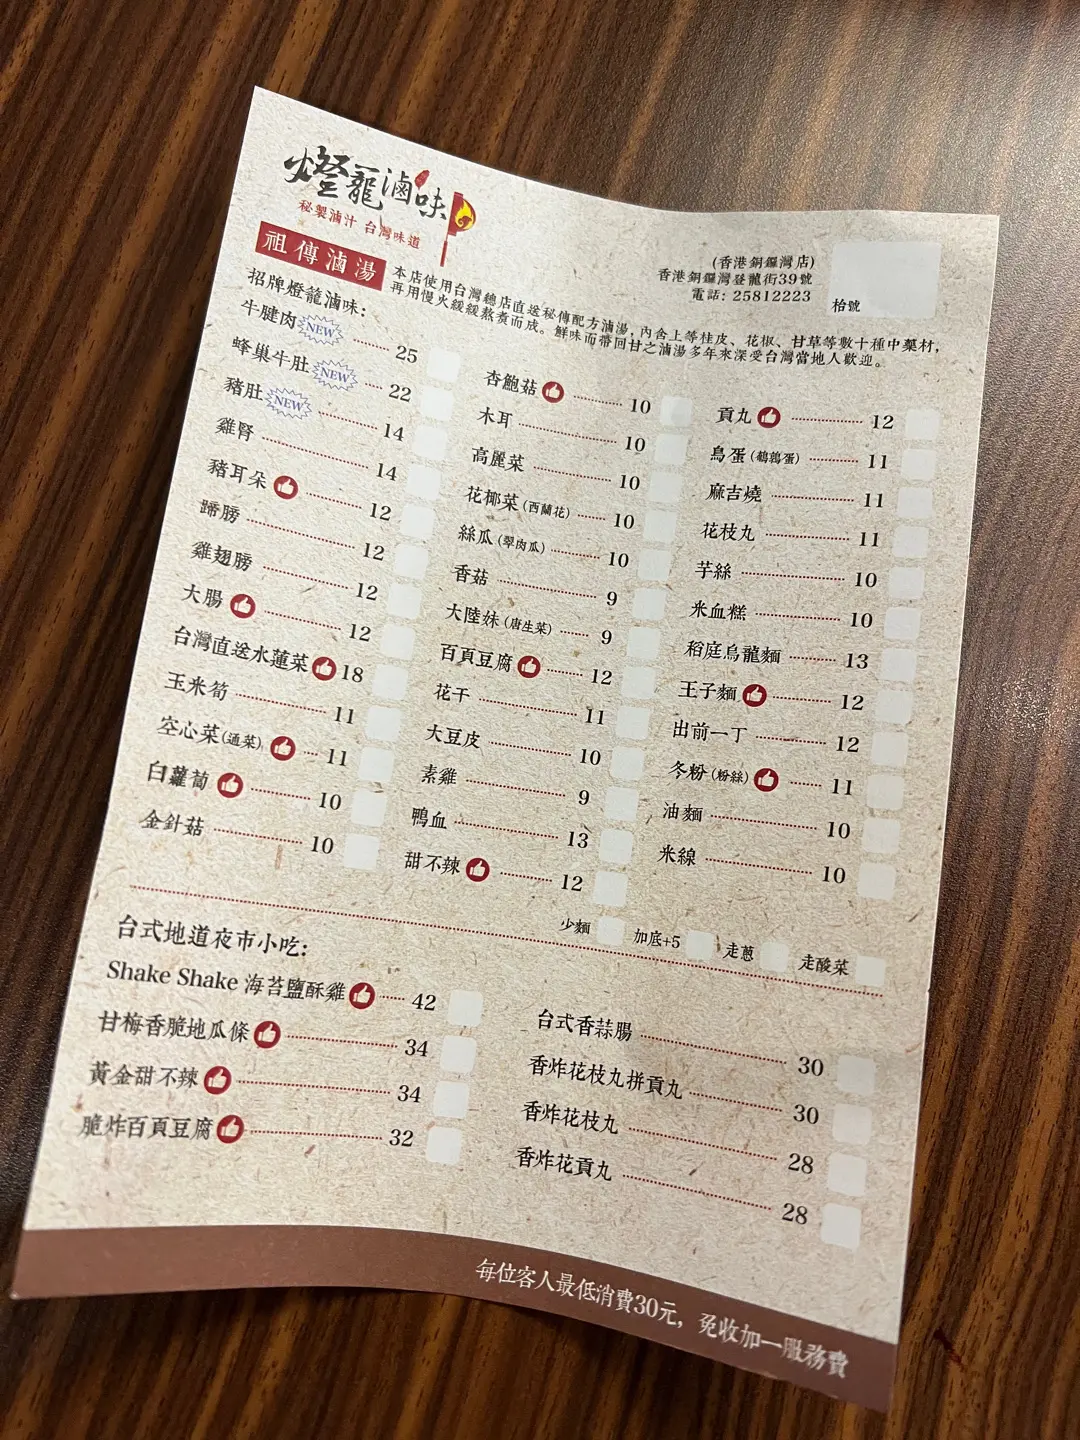 燈籠滷味
秘製滷汁 台灣味道
祖傳滷湯
(香港銅鑼灣店)
香港銅鑼灣登龍街39號
電話: 25812223
枱號
本店使用台灣總店直送秘傳配方滷湯, 內含上等桂皮、花椒、甘草等數十種中藥材,
再用慢火緩緩熬煮而成。鮮味而帶回甘之滷湯多年來深受台灣當地人歡迎。
招牌燈籠滷味:
牛腱肉 NEW 25
蜂巢牛肚 NEW 22
豬肚 NEW 14
雞腎 14
豬耳朵 12
蹄膀 12
雞翅膀 12
大腸 12
台灣直送水蓮菜 18
玉米筍 11
空心菜(通菜) 11
白蘿蔔 10
金針菇 10
杏鮑菇 10
木耳 10
高麗菜 10
花椰菜(西蘭花) 10
絲瓜(翠肉瓜) 10
香菇 9
大陸妹(唐生菜) 9
百頁豆腐 12
花干 11
大豆皮 10
素雞 9
鴨血 13
甜不辣 12
貢丸 12
鳥蛋(鵪鶉蛋) 11
麻吉燒 11
花枝丸 11
芋絲 10
米血糕 10
稻庭烏龍麵 13
王子麵 12
出前一丁 12
冬粉(粉絲) 11
油麵 10
米線 10
少麵 加底+5 走蔥 走酸菜
台式地道夜市小吃:
Shake Shake 海苔鹽酥雞 42
甘梅香脆地瓜條 34
黃金甜不辣 34
脆炸百頁豆腐 32
台式香蒜腸 30
香炸花枝丸拼貢丸 30
香炸花枝丸 28
香炸花貢丸 28
每位客人最低消費30元, 免收加一服務費